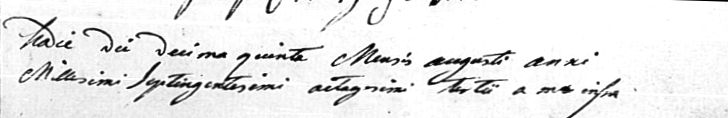 Hodie Die Decima quinta Mensis augusti anni
Millesimi Septingentesimi octagesimi tertii a me infra